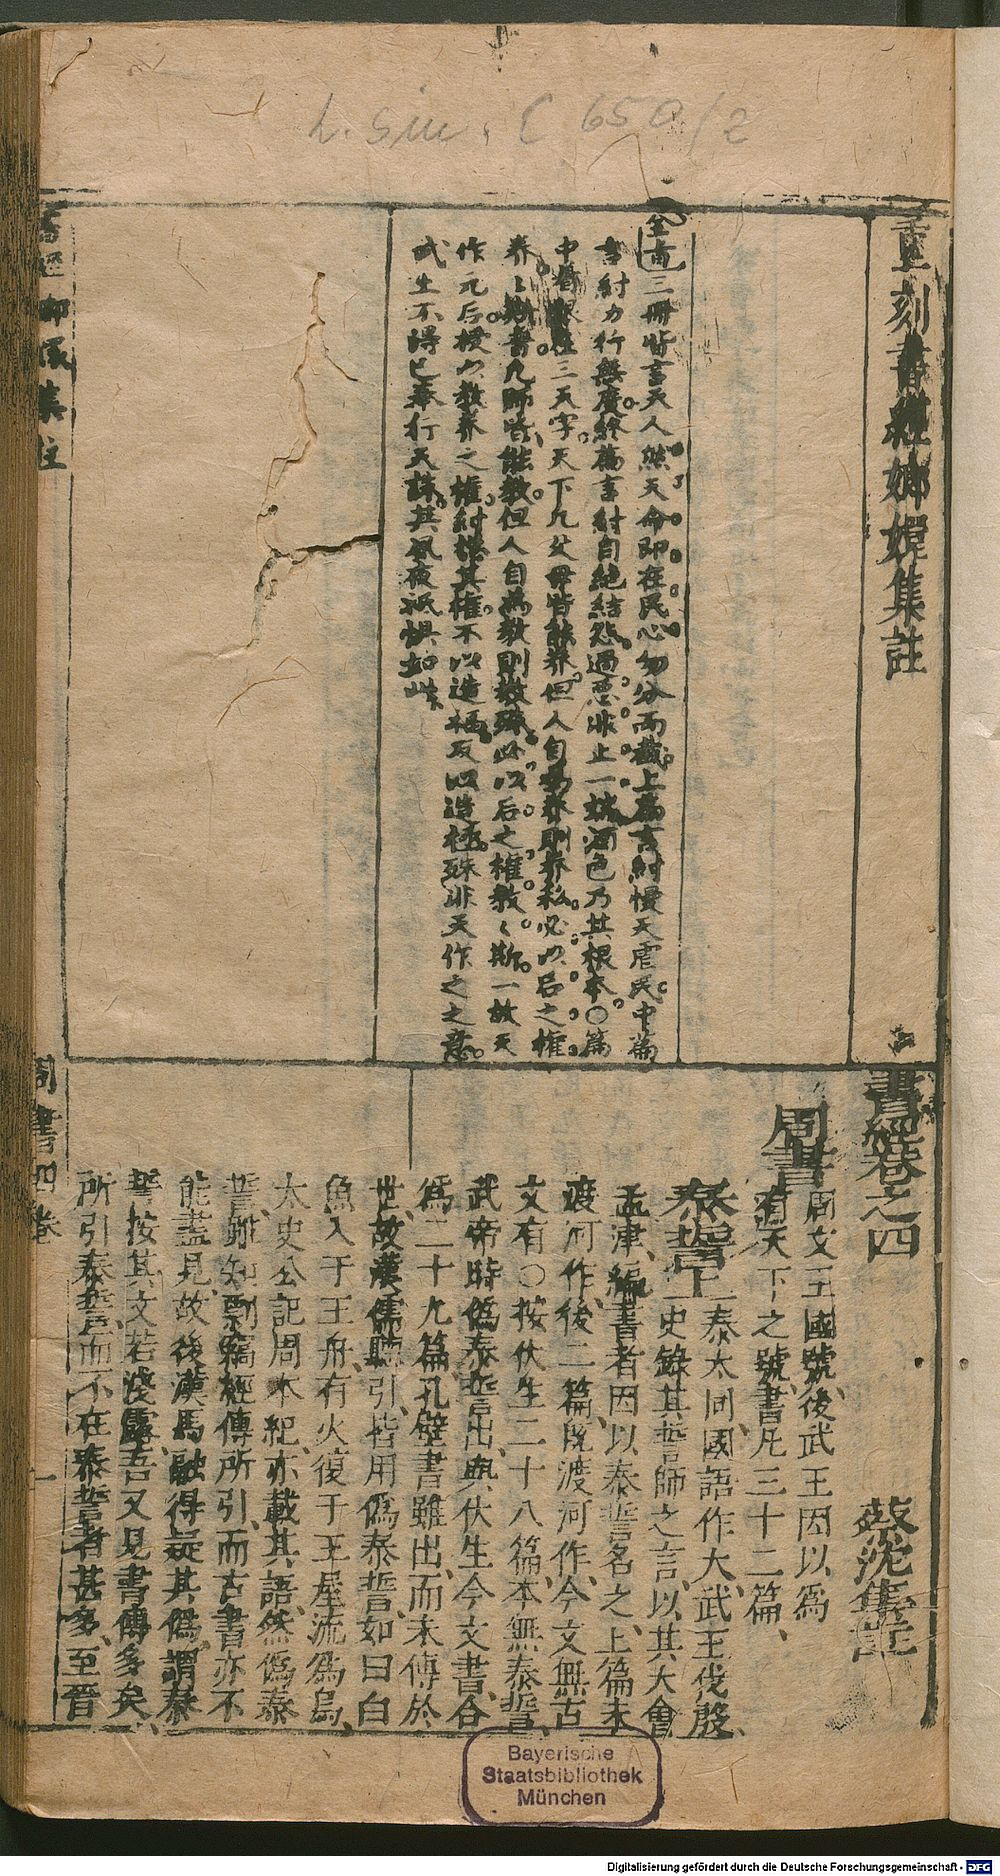 L. sin. C 650/2
重刻書經嫏嬛集註
全旨三冊皆言天人然天命即在民心勿分兩截上篇言紂慢天虐民中篇
言紂力行無度終篇言紂自絕結怨過惡非止一端酒色乃其根本〇篇
中三天字天下凡父母皆能養但人自為養則養私必以后之權
養〻斯普凡師皆能教但人自為教則教殊必以后之權教〻斯一故天
作元后授以教養之權紂操其權不以造福反以造極殊非天作之之意
武王不得已奉行天誅其夙夜祇懼如此
書經卷之四
蔡沈集註
周書
周文王國號後武王因以為
有天下之號書凡三十二篇
泰誓上
泰太同國語作大武王伐殷
史錄其誓師之言以其大會
孟津編書者因以泰誓名之上篇未
渡河作後二篇既渡河作今文無古
文有〇按伏生二十八篇本無泰誓
武帝時偽泰誓出與伏生今文書合
爲二十九篇孔壁書雖出而未傳於
世故漢儒所引皆用偽泰誓如曰白
魚入于王舟有火復于王屋流爲烏
太史公記周本紀亦載其語然偽泰
誓雖知剽竊經傳所引而古書亦不
能盡見故後漢馬融得疑其偽謂泰
誓按其文若淺露吾又見書傳多矣
所引泰誓而不在泰誓者甚多至晉
書經嫏嬛集註
周書四卷
一
Bayerische
Staatsbibliothek
München
Digitalisierung gefördert durch die Deutsche Forschungsgemeinschaft - DFG